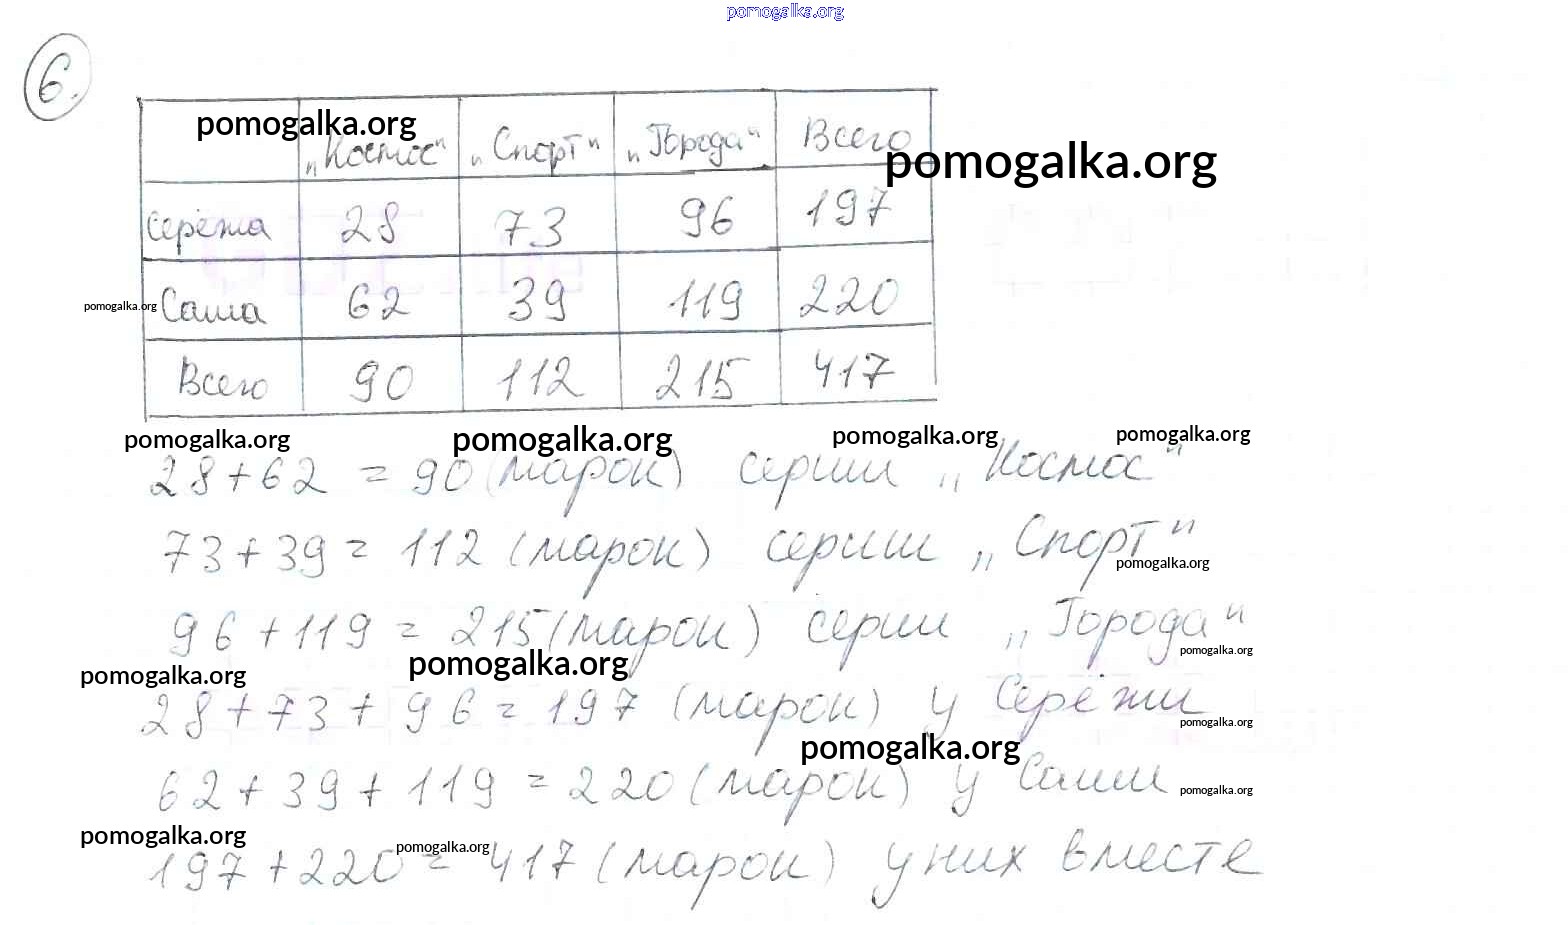 pomogalka.org
6.
pomogalka.org
„Космос“ „Спорт“ „Города“ Всего
pomogalka.org
Серёжа 28 73 96 197
pomogalka.org
Саша 62 39 119 220
Всего 90 112 215 417
pomogalka.org pomogalka.org pomogalka.org pomogalka.org
28+62 = 90 (марок) серии „Космос“
73+39 = 112 (марок) серии „Спорт“
pomogalka.org
96+119 = 215 (марок) серии „Города“
pomogalka.org
pomogalka.org pomogalka.org
28+73+96 = 197 (марок) у Серёжи
pomogalka.org
pomogalka.org
62+39+119 = 220 (марок) у Саши
pomogalka.org
pomogalka.org pomogalka.org
197+220 = 417 (марок) у них вместе